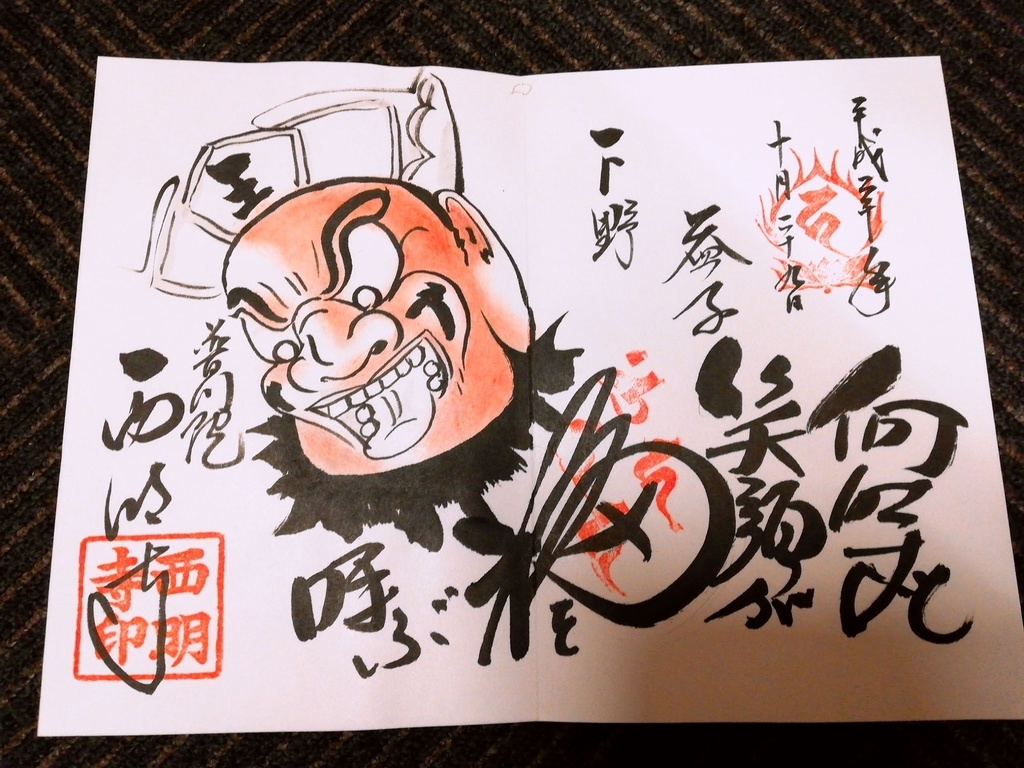 平成三十年
十月二十九日
下野
益子
何事も
笑顔が
福を
呼ぶ
王
普門院
西明寺
西明
寺印